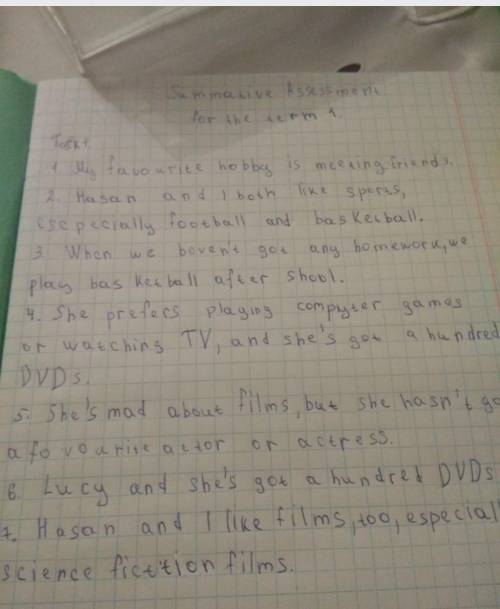 Summative Assessment
for the term 1.
Task 1
1. My favourite hobby is meeting friends.
2. Hasan and I both like sports,
especially football and basketball.
3. When we boven't got any homework, we
play basketball after shool.
4. She prefers playing compyter games
or watching TV, and she's got a hundred
DVDs.
5. She's mad about films, but she hasn't go
a fovourite actor or actress.
6. Lucy and she's got a hundred DVDs
7. Hasan and I like films, too, especial
science ficttion films.